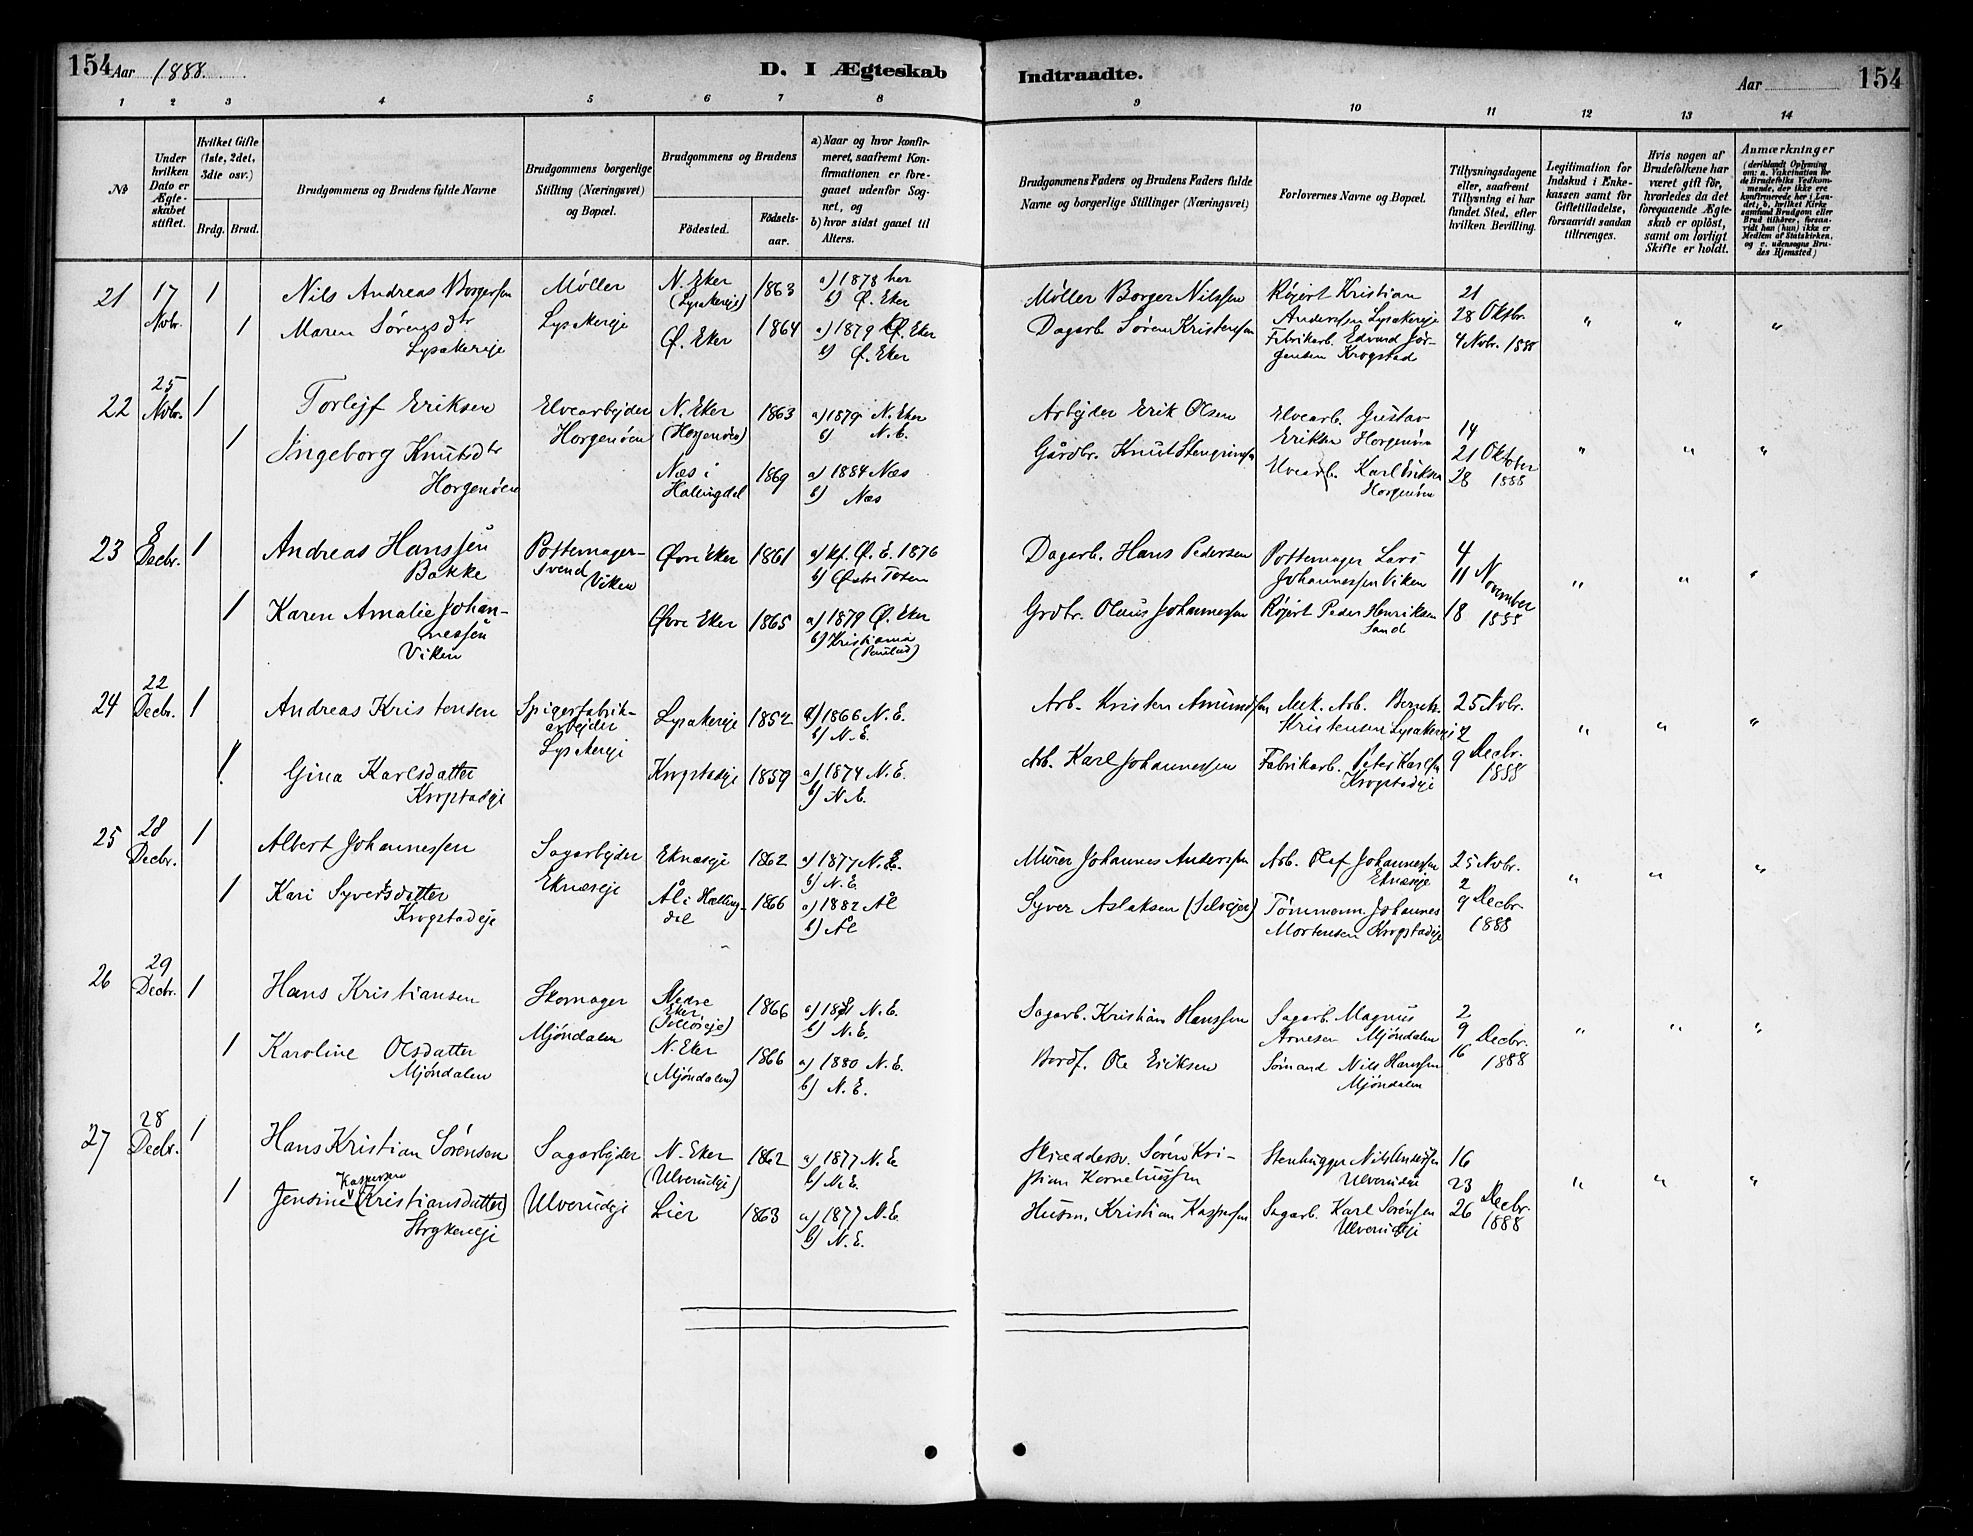 154 Aar 1888. D. I Ægteskab Indtraadte. Aar 154
1 2 3 4 5 6 7 8 9 10 11 12 13 14
No
Under hvilken Dato er Ægteskabet stiftet.
Hvilket Gifte (1ste, 2det, 3die osv.)
Brdg. Brud.
Brudgommens og Brudens fulde Navne
Brudgommens borgerlige Stilling (Næringsvei) og Bopæl.
Brudgommens og Brudens
Födested. Födselsaar.
a) Naar og hvor konfirmeret, saafremt Konfirmationen er foregaaet udenfor Sognet, og
b) hvor sidst gaaet til Alters.
Brudgommens Faders og Brudens Faders fulde Navne og borgerlige Stillinger (Næringsvei)
Forlovernes Navne og Bopæl.
Tillysningsdagene eller, saafremt Tillysning ei har fundet Sted, efter hvilken Bevilling.
Legitimation for Indskud i Enkekassen samt for Giftetilladelse, forsaavidt saadan tiltrænges.
Hvis nogen af Brudefolkene har været gift för, hvorledes da det foregaaende Ægteskab er oplöst, samt om lovligt Skifte er holdt.
Anmærkninger
(deriblandt Oplysning om: a. Vakcination for de Brudefolks Vedkommende, der ikke ere konfirmerede her i Landet, b. hvilket Kirkesamfund Brudgom eller Brud tilhører, forsaavidt han (hun) ikke er Medlem af Statskirken, og c. udensogns Brudes Hjemsted)
21 17 Novbr. 1 Nils Andreas Borgersen Møller Lysakereje N. Eker (Lysakereje) 1863 a) 1878 her b) Ø. Eker Møller Borger Nilssen Røjert Kristian Anderssen Lysakereje 21 28 Oktbr. 4 Novbr. 1888 " " "
1 Maren Sørensdtr Lysakereje Ø. Eker 1864 a) 1879 Ø. Eker b) Ø. Eker Dagarb. Søren Kristenssen Fabrikarb. Edvard Jørgensen Krogstad
22 25 Nvbr. 1 Torlejf Eriksen Elvearbejder Horgenøen N. Eker (Horgenøen) 1863 a) 1879 N. Eker b) N. E. Arbejder Erik Olsen Elvearb. Gustav Eriksen Horgenøen 14 21 Oktober 28 1888 " " "
1 Ingeborg Knutsdtr Horgenøen Næs i Hallingdal 1869 a) 1884 Næs b) Næs Gårdbr. Knut Elvearb. Karl Eriksen Horgenøen
23 8 Decbr. 1 Andreas Hanssen Bakke Pottemagersvend Viken Øvre Eker 1861 a) kf. Ø. E. 1876 b) Østre Toten Dagarb. Hans Pedersen Pottemager Lars Johannessen Viken 4 11 November 18 1888 " " "
1 Karen Amalie Johannessen Viken Øvre Eker 1865 a) 1879 Ø. Eker b) Kristiania Grdbr. Olaus Johannessen Røjert Peder Henriksen Sand
24 22 Decbr. 1 Andreas Kristensen Spigerfabrikarbejder Lysakereje Lysakereje 1852 a) 1866 N. E. b) N. E. Arb. Kristen Amundsen Mek. Arb. Bernh. Kristensen Lysakereje 25 Novbr. 2 9 Decbr. 1888 " " "
1 Gina Karlsdatter Krogstadeje Krogstadeje 1859 a) 1874 N. E. b) N. E. Arb. Karl Johannessen Fabrikarb. Peter Karlsen Krogstadeje
25 28 Decbr. 1 Albert Johannessen Sagarbejder Eknæseje Eknæseje 1862 a) 1877 N. E. b) N. E. Murer Johannes Anderssen Arb. Olaf Johannessen Eknæseje 25 Nvbr. 2 9 Decbr. 1888 " " "
1 Kari Syversdatter Krogstadeje Ål i Hallingdal 1866 a) 1882 Ål b) Ål Syver Aslaksen (Selvejer) Tømmerm. Johannes Mortensen Krogstadeje
26 29 Decbr. 1 Hans Kristiansen Skomager Mjöndalen Nedre Eker 1866 a) 1881 N. E. b) N. E. Sagarb. Kristian Hanssen Sagarb. Magnus Arnesen Mjöndalen 2 9 16 Decbr. 1888 " " "
1 Karoline Olsdatter Mjöndalen N. Eker (Mjöndalen) 1866 a) 1880 N. E. b) N. E. Ole Eriksen Sömand Nils Hanssen Mjöndalen
27 28 Decbr. 1 Hans Kristian Sörensen Sagarbejder Ulverudeje N. Eker (Ulverudeje) 1862 a) 1877 N. E. b) N. E. Skræddersv. Sören Kristian Korneliussen Stenhugger Nils Anderssen Ulverudeje 16 23 26 Decbr. 1888 " " "
1 Jensine Kaspersen (Kristiansdatter) Lier 1863 a) 1877 N. E. b) N. E. Husm. Kristian Kaspersen Sagarb. Karl Sørensen Ulverudeje